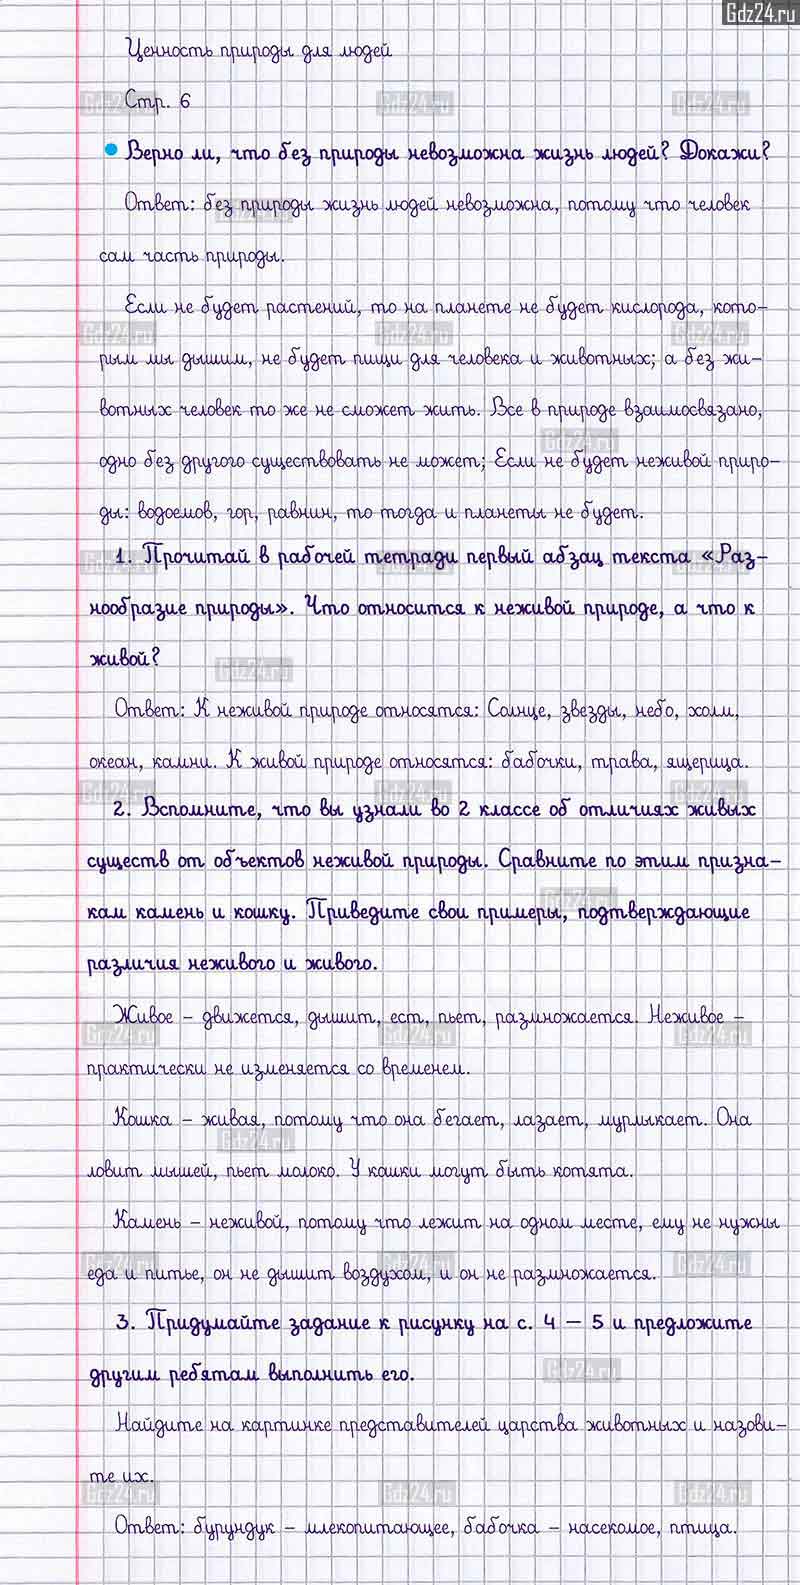 Gdz24.ru
Ценность природы для людей
Стр. 6
Верно ли, что без природы невозможна жизнь людей? Докажи?
Ответ: без природы жизнь людей невозможна, потому что человек
сам часть природы.
Если не будет растений, то на планете не будет кислорода, кото-
рым мы дышим, не будет пищи для человека и животных; а без жи-
вотных человек то же не сможет жить. Все в природе взаимосвязано,
одно без другого существовать не может; Если не будет неживой приро-
ды: водоемов, гор, равнин, то тогда и планеты не будет.
1. Прочитай в рабочей тетради первый абзац текста «Раз-
нообразие природы». Что относится к неживой природе, а что к
живой?
Ответ: К неживой природе относятся: Солнце, звезды, небо, холм,
океан, камни. К живой природе относятся: бабочки, трава, ящерица.
2. Вспомните, что вы узнали во 2 классе об отличиях живых
существ от объектов неживой природы. Сравните по этим призна-
кам камень и кошку. Приведите свои примеры, подтверждающие
различия неживого и живого.
Живое – движется, дышит, ест, пьет, размножается. Неживое –
практически не изменяется со временем.
Кошка – живая, потому что она бегает, лазает, мурлыкает. Она
ловит мышей, пьет молоко. У кошки могут быть котята.
Камень – неживой, потому что лежит на одном месте, ему не нужны
еда и питье, он не дышит воздухом, и он не размножается.
3. Придумайте задание к рисунку на с. 4 – 5 и предложите
другим ребятам выполнить его.
Найдите на картинке представителей царства животных и назови-
те их.
Ответ: бурундук – млекопитающее, бабочка – насекомое, птица.